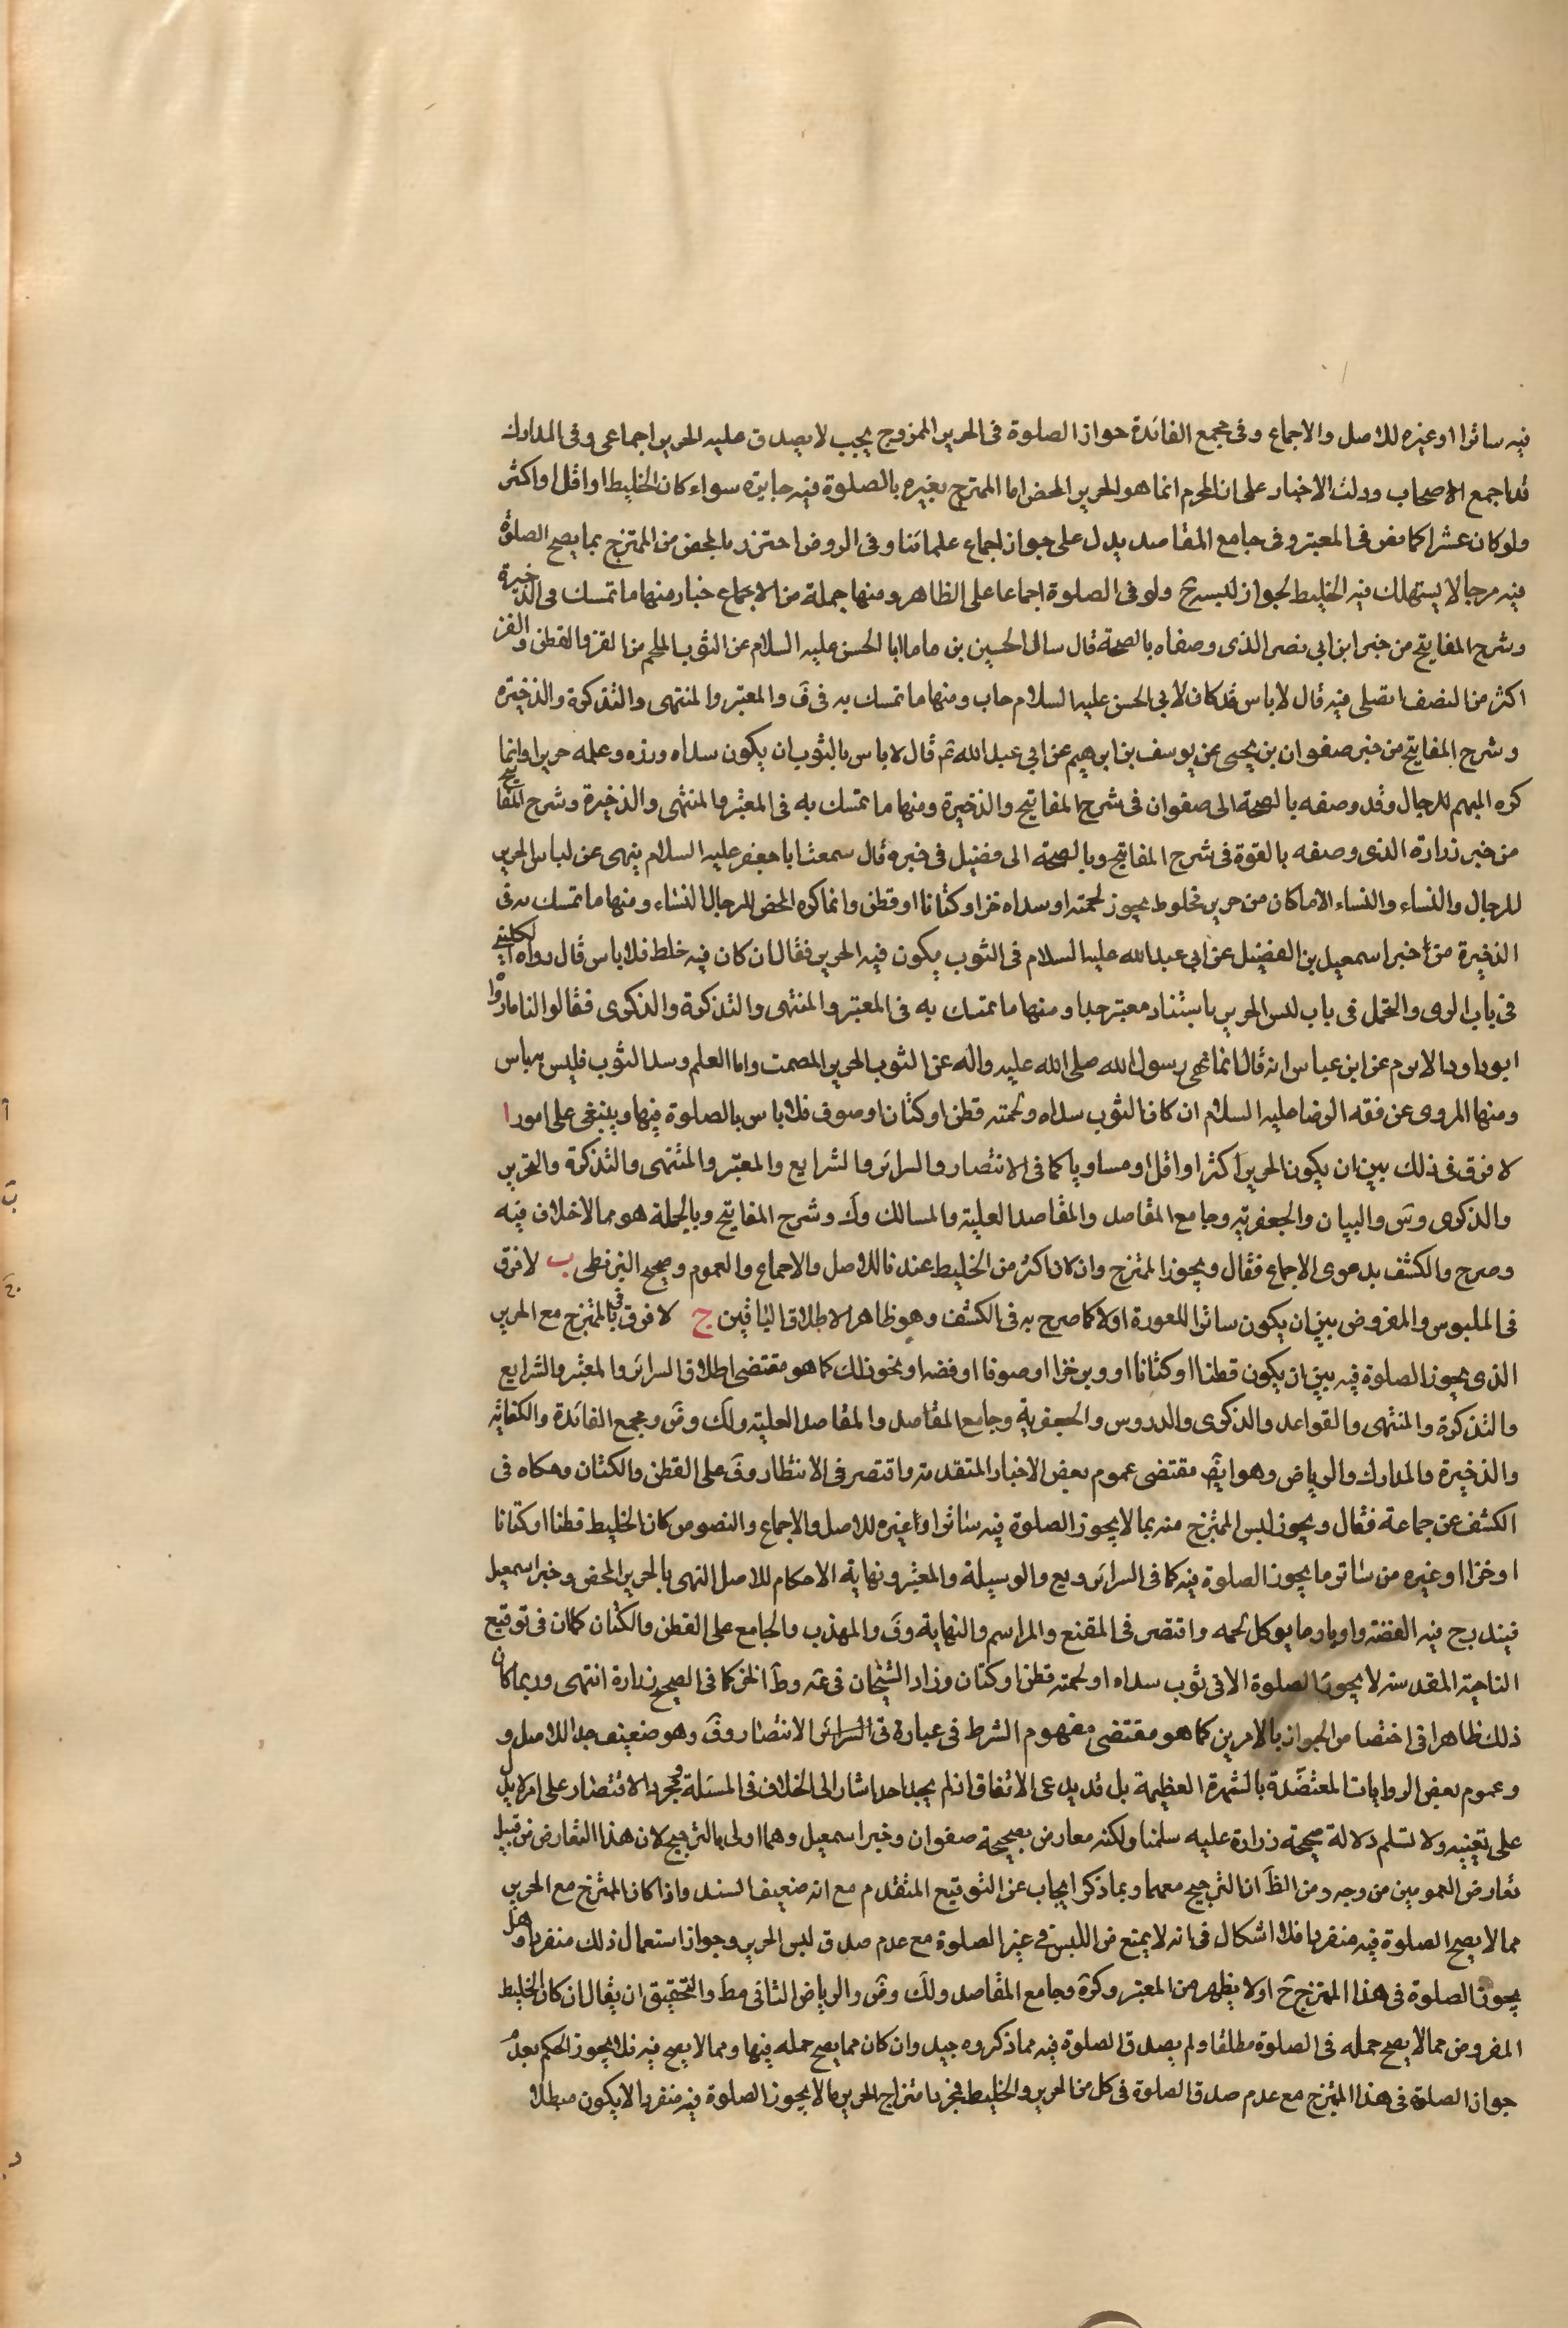 فيه ساترا او غيره للاصل والاجماع وفى مجمع الفائدة جواز الصلوة فى الحرير الممزوج بحيث لا يصدق عليه الحرير اجماعى وفى المدارك
قد اجمع الاصحاب ودلت الاخبار على ان المحرم انما هو الحرير المحض اما الممتزج بغيره بالصلوة فيه جايزه سواء كان الخليط او اقل او اكثر
ولو كان عشرا كما نص فى المعتبر وفى جامع المقاصد يدل على جواز اجماع علمائنا وفى الروض احترز بالمحض من الممتزج بما يصح الصلوة
فيه مزجا لا يستهلك فيه الخليط لجواز لبسه ح ولو فى الصلوة اجماعا على الظاهر ومنها جملة من الاخبار منها ما تمسك فى الذخيرة
وشرح المفاتيح من خبر ابن ابى نصر الذى وصفاه بالصحة قال سال الحسين بن ابا الحسن عليه السلام عن الثوب الملحم من القز والقطن والقز
اكثر من النصف اتصلى فيه قال لا باس قد كان لابي الحسن عليه السلام جاب ومنها ما تمسك به فى ف والمعتبر والمنتهى والتذكرة والذخيرة
وشرح المفاتيح من خبر صفوان بن يحيى عن يوسف بن ابرهيم عن ابي عبد الله ع قال لا باس بالثوب ان يكون سداه وزره وعلمه حريرا وانما
كره المبهم للرجال وقد وصفه بالصحة الى صفوان فى شرح المفاتيح والذخيرة ومنها ما تمسك به فى المعتبر والمنتهى والذخيرة وشرح المفاتيح
من خبر زرارة الذى وصفه بالقوة فى شرح المفاتيح وبالصحة الى فضيل فى خبره قال سمعت ابا جعفر عليه السلام ينهى عن لباس الحرير
للرجال والنساء والنساء الا ما كان من حرير مخلوط بحيوز لحمته او سداه خز او كتانا او قطن وانما كره المحض للرجال النساء ومنها ما تمسك به فى
الذخيرة من خبر اسمعيل بن الفضيل عن ابي عبد الله عليه السلام فى الثوب يكون فيه الحرير فقال ان كان فيه خلط فلا باس قال رواه الكلينى
فى باب الزى والتجمل فى باب لبس الحرير باسناد معتبر جدا ومنها ما تمسك به فى المعتبر والمنتهى والتذكرة والذكرى فقالوا لنا ما رواه
ابو داود الاثرم عن ابن عباس انه قال انما نهى رسول الله صلى الله عليه واله عن الثوب الحرير المصمت واما العلم وسدا الثوب فليس به باس
ومنها المروى عن فقه الرضا عليه السلام ان كان الثوب سداه ولحمته قطن او كتان او صوف فلا باس بالصلوة فيها وينبغى على امور ا
لا فرق فى ذلك بين ان يكون الحرير اكثر او اقل او مساويا كما فى الانتصار والسرائر والشرايع والمعتبر والمنتهى والتذكرة والتحرير
والذكرى وس والبيان والجعفرية وجامع المقاصد والمقاصد العلية والمسالك وك وشرح المفاتيح وبالجملة هو مما لا خلاف فيه
وصرح والكشف بدعوى الاجماع فقال ويجوز الممتزج وان كان اكثر من الخليط عندنا للاصل والاجماع والعموم وصحيح البزنطى ب لا فرق
فى الملبوس والمفروض بين ان يكون ساترا للعورة او لا كما صرح به فى الكشف وهو ظاهر الاطلاق الباقين ج لا فرق فى الممتزج مع الحرير
الذى يجوز الصلوة فيه بين ان يكون قطنا او كتانا او وبر خز او صوفا او فضه او نحو ذلك كما هو مقتضى اطلاق السرائر والمعتبر والشرايع
والتذكرة والمنتهى والقواعد والذكرى والدروس والجعفرية وجامع المقاصد والمقاصد العلية ولك وض ومجمع الفائدة والكفاية
والذخيرة والمدارك والرياض وهو ايض مقتضى عموم بعض الاخبار المتقدمة واقتصر فى الانتظار وف على القطن والكتان وحكاه فى
الكشف عن جماعة فقال ويجوز لبس الممتزج منه بما لا يجوز الصلوة فيه ساترا او غيره للاصل والاجماع والنصوص كان الخليط قطنا او كتانا
او خزا او غيره من ساتر ما يجوز الصلوة فيه كما فى السرائر ويع والوسيلة والمعتبر ونهاية الاحكام للاصل النهى بالحرير المحض وخبر اسمعيل
فيندرج فيه الفضة واوبار ما يوكل لحمه واقتصر فى المقنع والمراسم والنهاية وف والمهذب والجامع على القطن والكتان كمان فى توقيع
الناحية المقدسة لا يجوز الصلوة الا فى ثوب سداه او لحمته قطن او كتان وزاد الشيخان فى عه وط الخز كما فى الصحيح زرارة انتهى وربما كان
ذلك ظاهرا فى اختصاص الجواز بالامرين كما هو مقتضى مفهوم الشرط فى عبارة فى السرائر الانتصار وف وهو ضعيف جدا للاصل و
وعموم بعض الروايات المعتضدة بالشهرة العظيمة بل قد يدعى الاتفاق اذ لم يجد احدا شار الى الخلاف فى المسئلة ومجرد الاقتصار على امر لا يدل
على تعيينه ولا تسلم دلالة صحيحة زرارة عليه سلمنا ولكنه معارض بصحيحة صفوان وخبر اسمعيل وهما اولى بالترجيح لان هذا التعارض من قبيل
تعارض العمومين من وجه ومن الظ ان الترجيح معهما وبما ذكر ايجاب عن التوقيع المتقدم مع انه ضعيف السند واذا كان الممتزج مع الحرير
مما لا يصح الصلوة فيه منفردا فلا اشكال فى انه لا يمنع من اللبس فى غير الصلوة مع عدم صدق لبس الحرير وجواز استعمال ذلك منفردا وهل
يجوز الصلوة فى هذا الممتزج ح او لا يظهر من المعتبر وكرة وجامع المقاصد ولك وض والرياض الثانى مط والتحقيق ان يقال ان كان الخليط
المفروض مما لا يصح حمله فى الصلوة مطلقا ولم يصدق الصلوة فيه مما ذكروه جيد وان كان مما يصح حمله فيها ومما لا يصح فيه فلا يجوز الحكم بعدم
جواز الصلوة فى هذا الممتزج مع عدم صدق الصلوة فى كل من الحرير والخليط فمجرد امتزاج الحرير بما لا يجوز الصلوة فيه منفردا لا يكون مبطلا